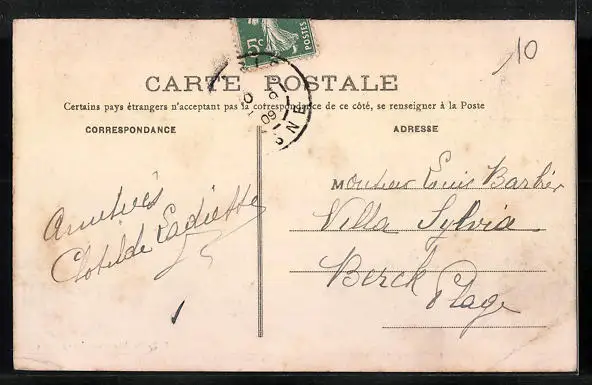 5c
POSTES
10
CARTE POSTALE
Certains pays étrangers n'acceptant pas la correspondance de ce côté, se renseigner à la Poste
CORRESPONDANCE
ADRESSE
Amitiés
Clotilde
Monsieur Louis Barbier
Villa Sylvia
Berck
Plage